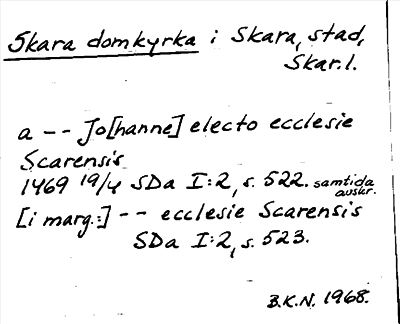 Skara domkyrka i Skara, stad,
Skar.l.
a -- Jo[hanne] electo ecclesie
Scarensis
1469 19/4 SDa I:2, s. 522. samtida
avskr.
[i marg.:] -- ecclesie Scarensis
SDa I:2, s. 523.
B.K.N. 1968.